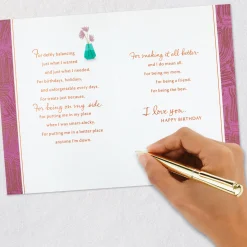 For deftly balancing
just what I wanted
and just what I needed.
For birthdays, holidays,
and unforgettable every days.
For treats just because.
For being on my side.
For putting me in my place
when I was smart-alecky.
For putting me in a better place
anytime I'm down.
For making it all better
and I do mean all.
For being my mom.
For being a friend.
For being the best.
I love you.
HAPPY BIRTHDAY